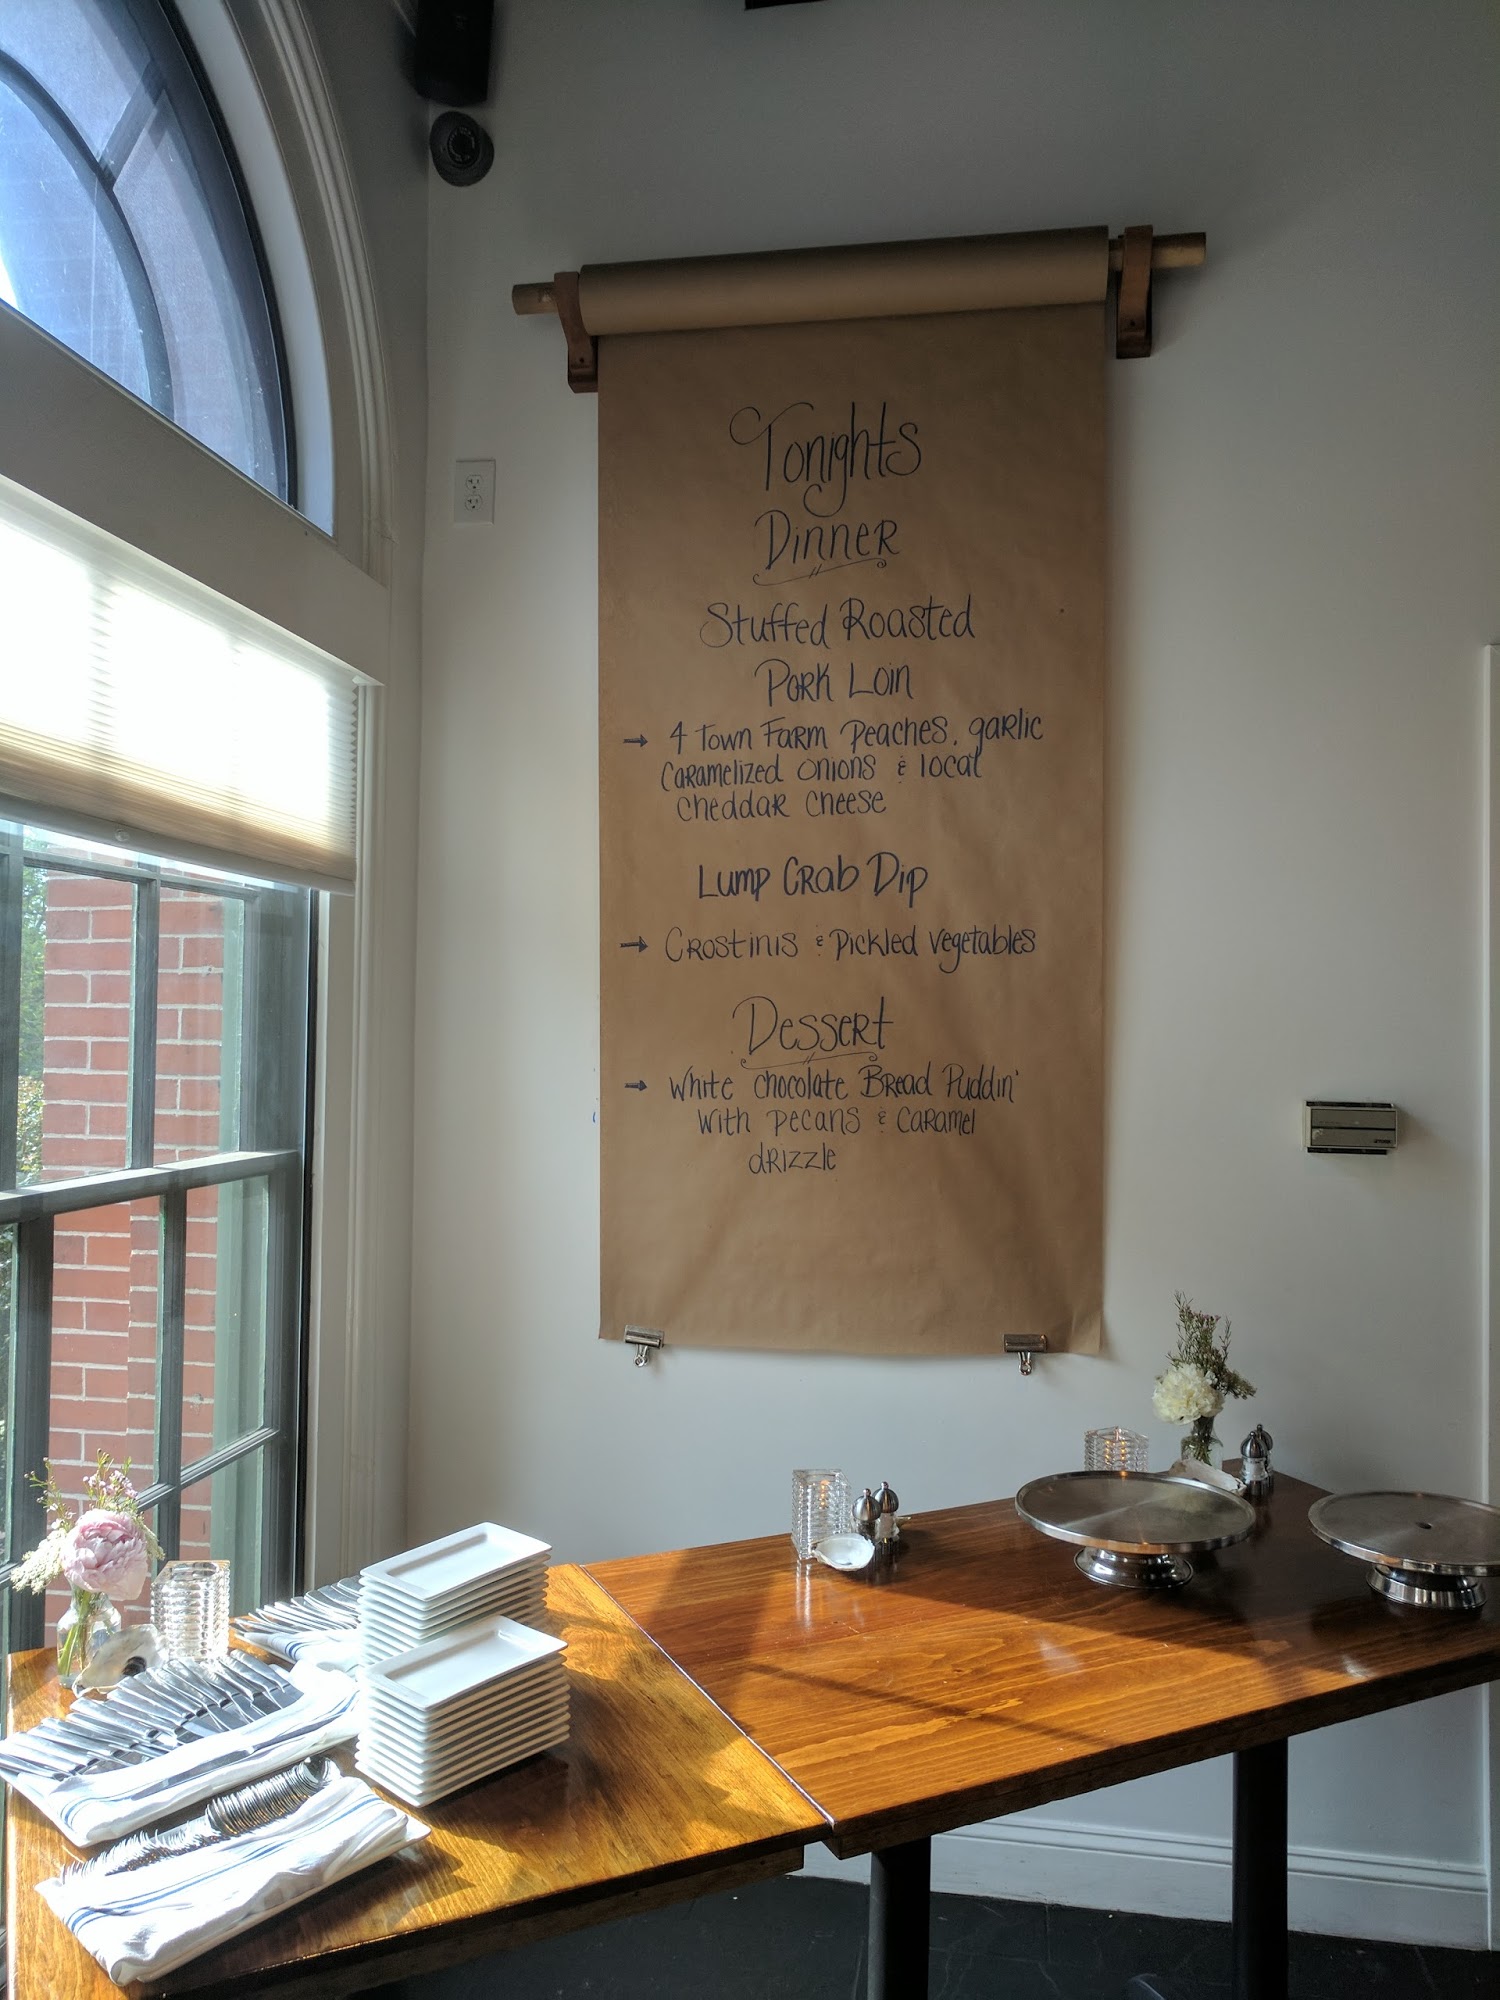 Tonights
Dinner
Stuffed Roasted
Pork Loin
→ 4 Town Farm Peaches, garlic
Caramelized onions & local
cheddar cheese
Lump Crab Dip
→ Crostinis & Pickled vegetables
Dessert
→ White chocolate Bread Puddin'
with pecans & caramel
drizzle